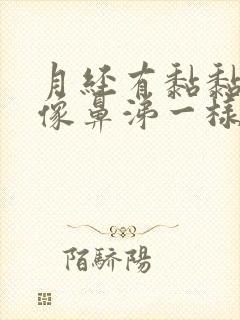 月經有黏黏
像鼻涕一樣
陌驕陽